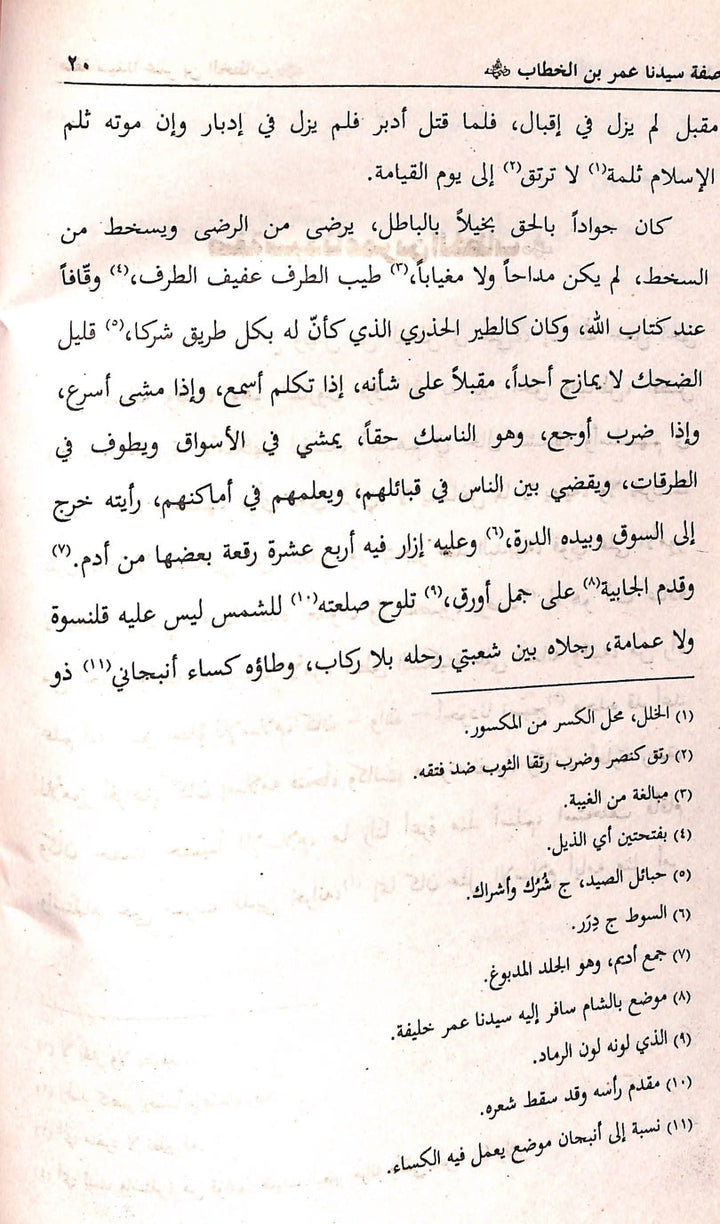 صفة سيدنا عمر بن الخطاب ﵁
٢٠
مقبل لم يزل في إقبال، فلما قتل أدبر فلم يزل في إدبار وإن موته ثلم
الإسلام ثلمة(١) لا ترتق(٢) إلى يوم القيامة.
كان جواداً بالحق بخيلاً بالباطل، يرضى من الرضى ويسخط من
السخط، لم يكن مداحاً ولا مغياباً،(٣) طيب الطرف عفيف الطرف،(٤) وقّافاً
عند كتاب الله، وكان كالطير الحذري الذي كأنّ له بكل طريق شركا،(٥) قليل
الضحك لا يمازح أحداً، مقبلاً على شأنه، إذا تكلم أسمع، وإذا مشى أسرع،
وإذا ضرب أوجع، وهو الناسك حقاً، يمشي في الأسواق ويطوف في
الطرقات، ويقضي بين الناس في قبائلهم، ويعلمهم في أماكنهم، رأيته خرج
إلى السوق وبيده الدرة،(٦) وعليه إزار فيه أربع عشرة رقعة بعضها من أدم.(٧)
وقدم الجابية(٨) على جمل أورق،(٩) تلوح صلعته(١٠) للشمس ليس عليه قلنسوة
ولا عمامة، رجلاه بين شعبتي رحله بلا ركاب، وطاؤه كساء أنبجاني(١١) ذو
(١) الخلل، محل الكسر من المكسور.
(٢) رتق كنصر وضرب رتقا الثوب ضد فتقه.
(٣) مبالغة من الغيبة.
(٤) بفتحتين أي الذيل.
(٥) حبائل الصيد، ج شُرُك وأشراك.
(٦) السوط ج دِرَر.
(٧) جمع أديم، وهو الجلد المدبوغ.
(٨) موضع بالشام سافر إليه سيدنا عمر خليفة.
(٩) الذي لونه لون الرماد.
(١٠) مقدم رأسه وقد سقط شعره.
(١١) نسبة إلى أنبجان موضع يعمل فيه الكساء.